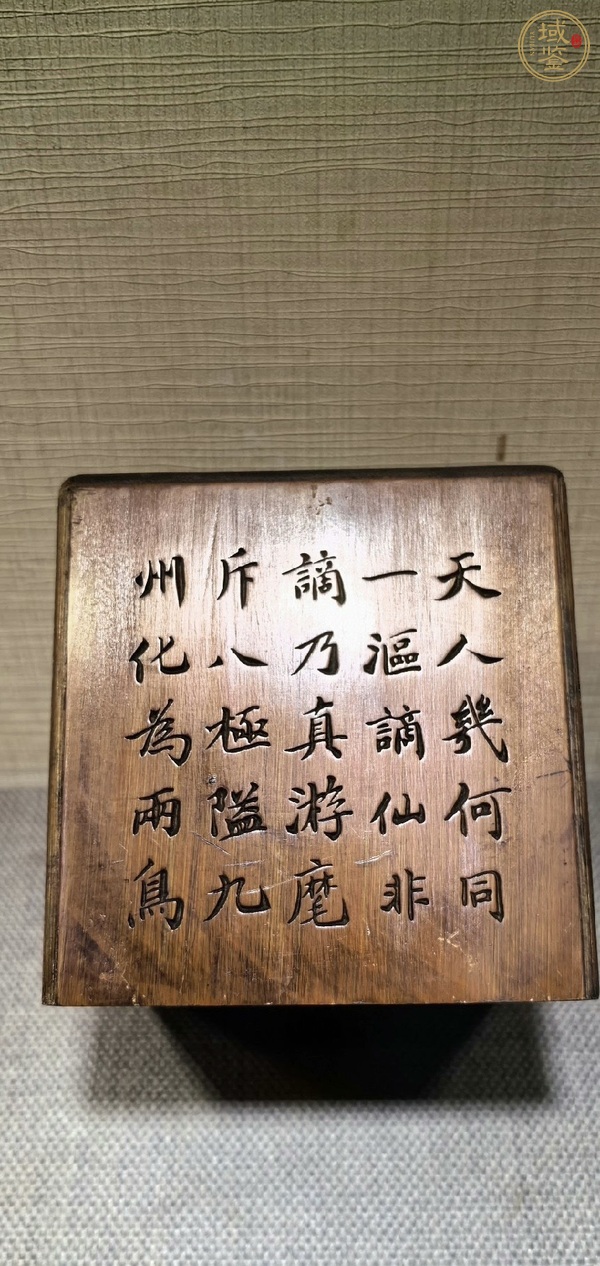 天人幾何同
一漚謫仙非
謫乃真游麾
斥八極隘九
州化為兩鳥
域鉴